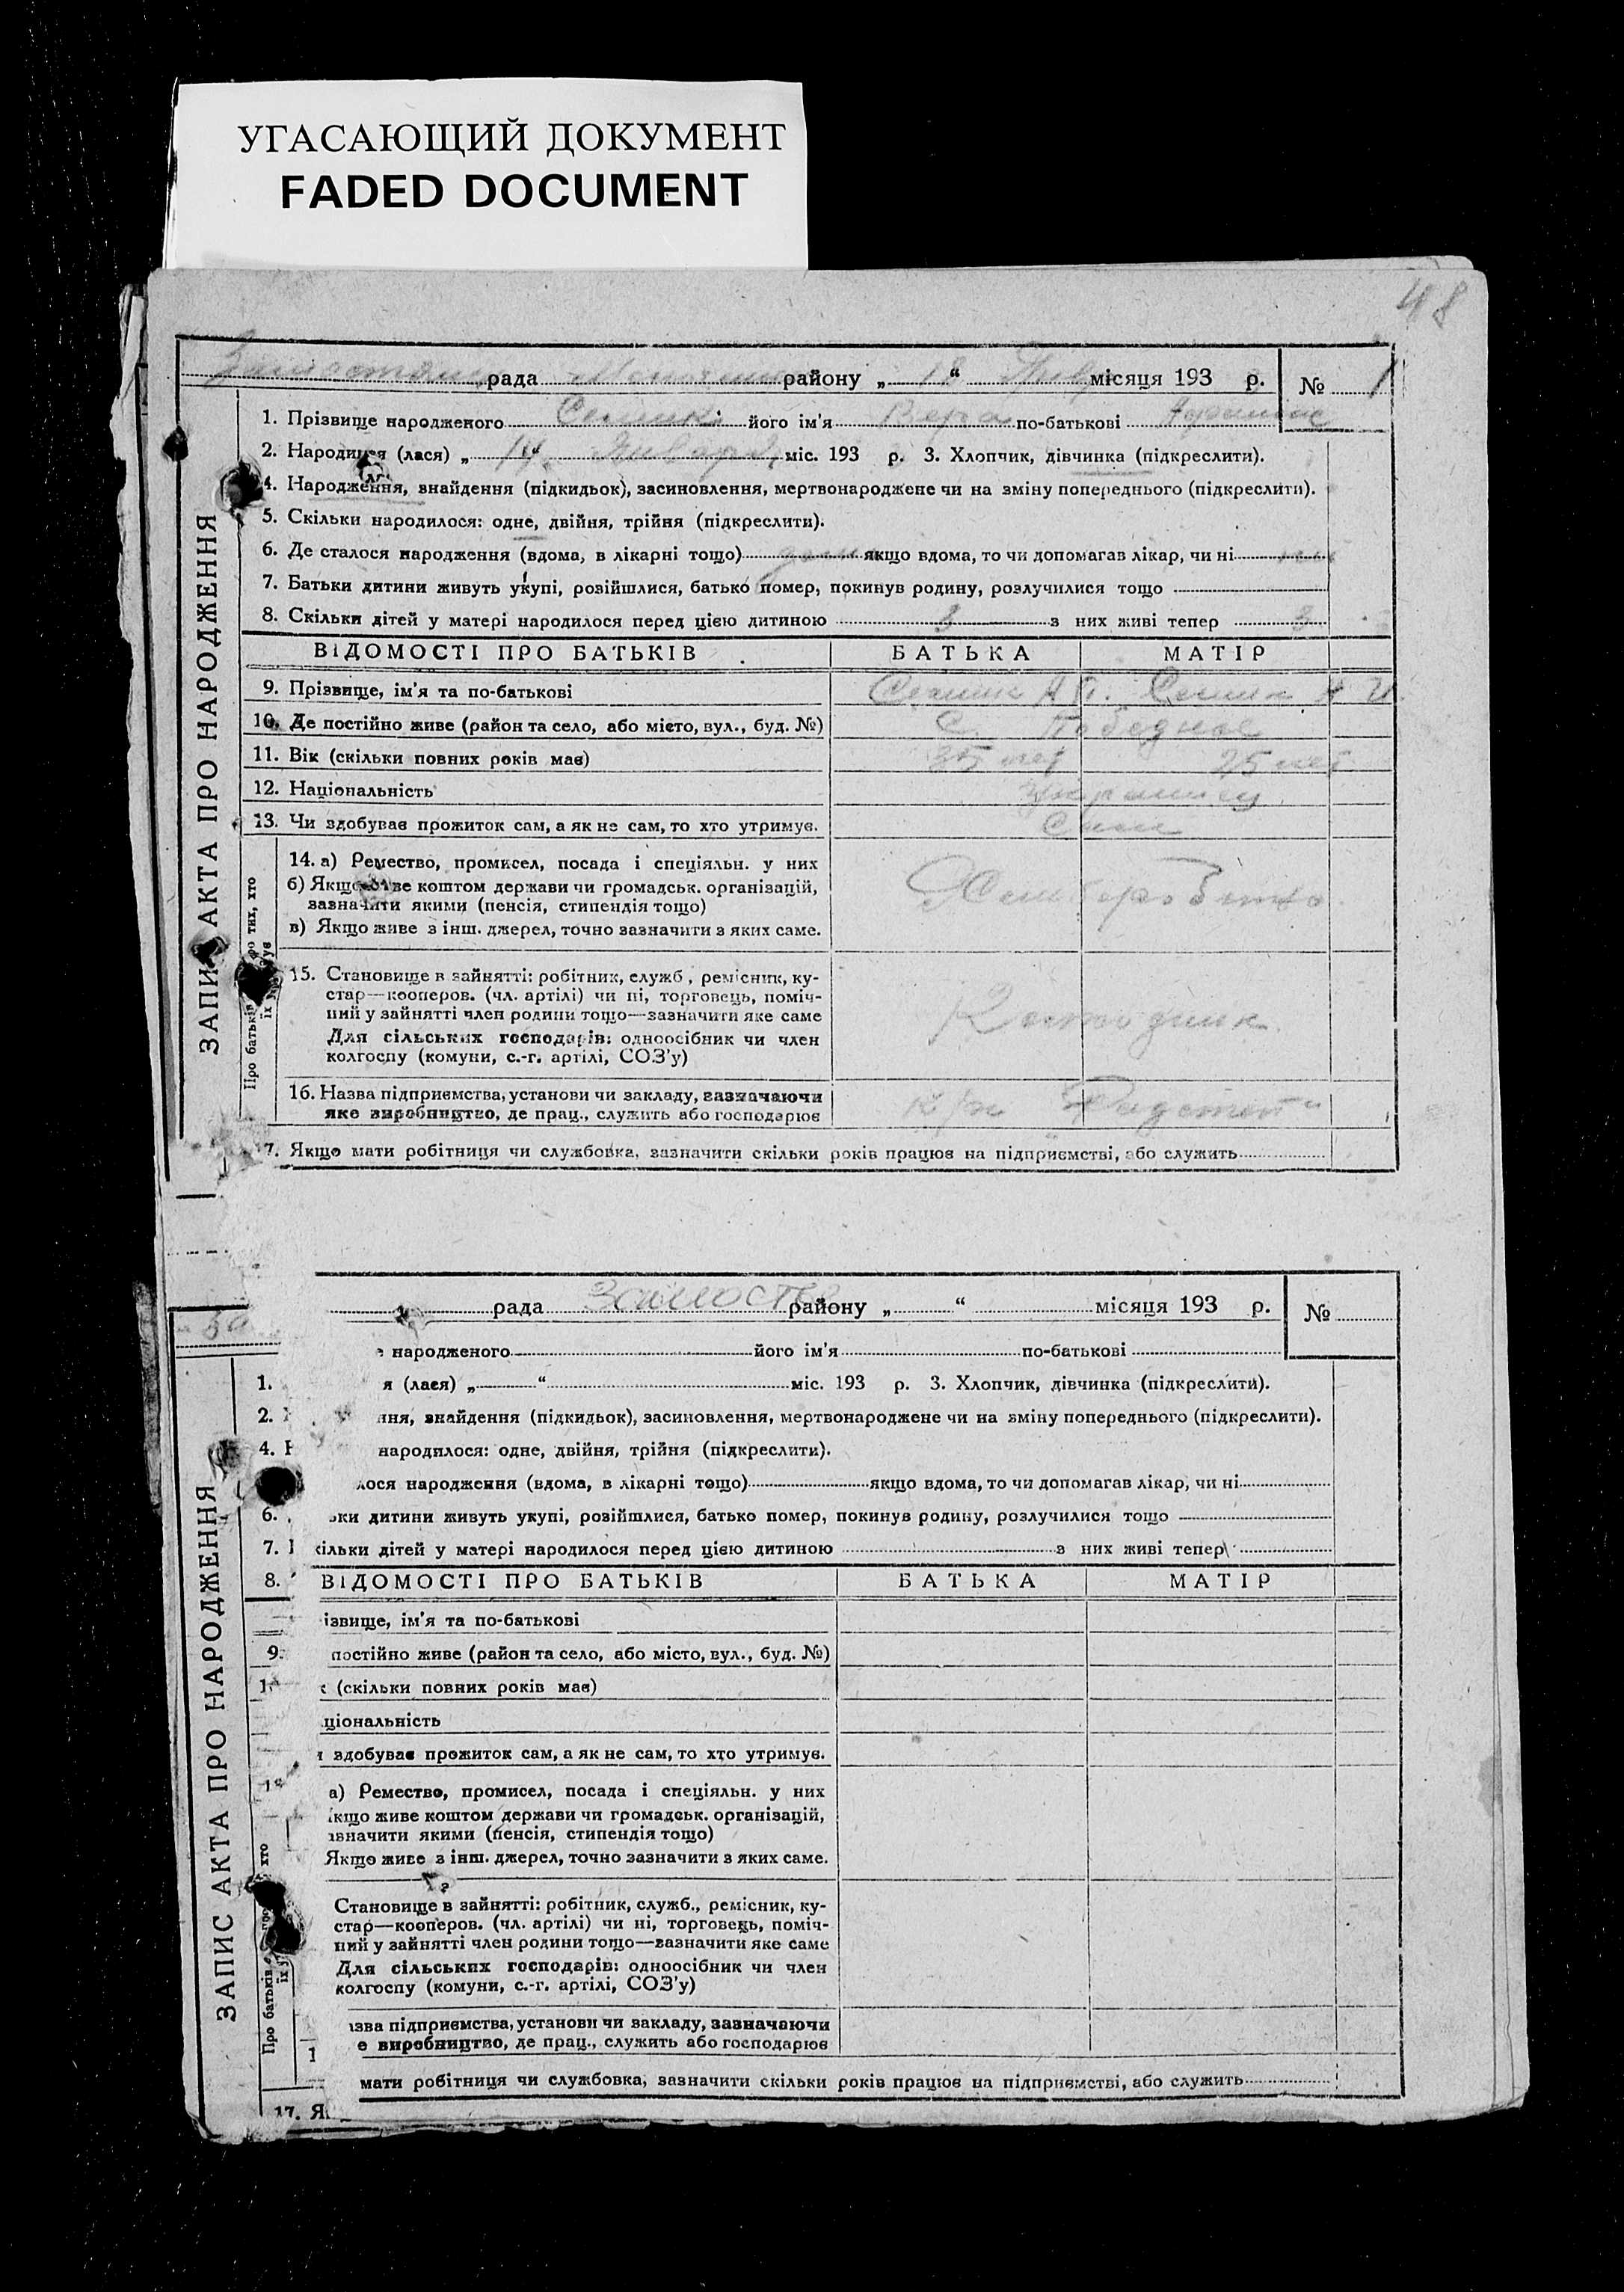 УГАСАЮЩИЙ ДОКУМЕНТ
FADED DOCUMENT
48
рада району „ 18 “ місяця 193 р. № 1
ЗАПИС АКТА ПРО НАРОДЖЕННЯ
1. Прізвище народженого його ім'я Вера по-батькові
2. Народився (лася) „ 14 Января міс. 193 р. 3. Хлопчик, дівчинка (підкреслити).
4. Народження, знайдення (підкидьок), засиновлення, мертвонароджене чи на зміну попереднього (підкреслити).
5. Скільки народилося: одне, двійня, трійня (підкреслити).
6. Де сталося народження (вдома, в лікарні тощо) якщо вдома, то чи допомагав лікар, чи ні
7. Батьки дитини живуть укупі, розійшлися, батько помер, покинув родину, розлучилися тощо
8. Скільки дітей у матері народилося перед цією дитиною 3 з них живі тепер 3
ВІДОМОСТІ ПРО БАТЬКІВ БАТЬКА МАТІР
9. Прізвище, ім'я та по-батькові
10. Де постійно живе (район та село, або місто, вул., буд. №) с. Победное
11. Вік (скільки повних років має) 35 лет 25 лет
12. Національність
13. Чи здобував прожиток сам, а як не сам, то хто утримує. Сами
Про батьків
ро тих, хто
їх
14. а) Ремество, промисел, посада і спеціяльн. у них
б) Якщо живе коштом держави чи громадськ. організацій,
зазначити якими (пенсія, стипендія тощо)
в) Якщо живе з інш. джерел, точно зазначити з яких саме.
15. Становище в зайнятті: робітник, служб., ремісник, ку-
стар—кооперов. (чл. артілі) чи ні, торговець, поміч-
ний у зайнятті член родини тощо—зазначити яке саме
Для сільських господарів: одноосібник чи член
колгоспу (комуни, с.-г. артілі, СОЗ'у)
16. Назва підприємства, установи чи закладу, зазначаючи
яке виробництво, де прац., служить або господарює к/х
7. Якщо мати робітниця чи службовка, зазначити скільки років працює на підприємстві, або служить
рада Замостье району „ “ місяця 193 р. №
ЗАПИС АКТА ПРО НАРОДЖЕННЯ
народженого його ім'я по-батькові
1. я (лася) „ “ міс. 193 р. 3. Хлопчик, дівчинка (підкреслити).
2. ння, знайдення (підкидьок), засиновлення, мертвонароджене чи на зміну попереднього (підкреслити).
4. народилося: одне, двійня, трійня (підкреслити).
лося народження (вдома, в лікарні тощо) якщо вдома, то чи допомагав лікар, чи ні
6. ьки дитини живуть укупі, розійшлися, батько помер, покинув родину, розлучилися тощо
7. кільки дітей у матері народилося перед цією дитиною з них живі тепер
8. ВІДОМОСТІ ПРО БАТЬКІВ БАТЬКА МАТІР
ізвище, ім'я та по-батькові
9. постійно живе (район та село, або місто, вул., буд. №)
(скільки повних років має)
ціональність
здобував прожиток сам, а як не сам, то хто утримує.
Про батьків
хто
їх
а) Ремество, промисел, посада і спеціяльн. у них
кщо живе коштом держави чи громадськ. організацій,
значити якими (пенсія, стипендія тощо)
Якщо живе з інш. джерел, точно зазначити з яких саме.
Становище в зайнятті: робітник, служб., ремісник, ку-
стар—кооперов. (чл. артілі) чи ні, торговець, поміч-
ний у зайнятті член родини тощо—зазначити яке саме
Для сільських господарів: одноосібник чи член
колгоспу (комуни, с.-г. артілі, СОЗ'у)
зва підприємства, установи чи закладу, зазначаючи
е виробництво, де прац., служить або господарює
мати робітниця чи службовка, зазначити скільки років працює на підприємстві, або служить
17. Я